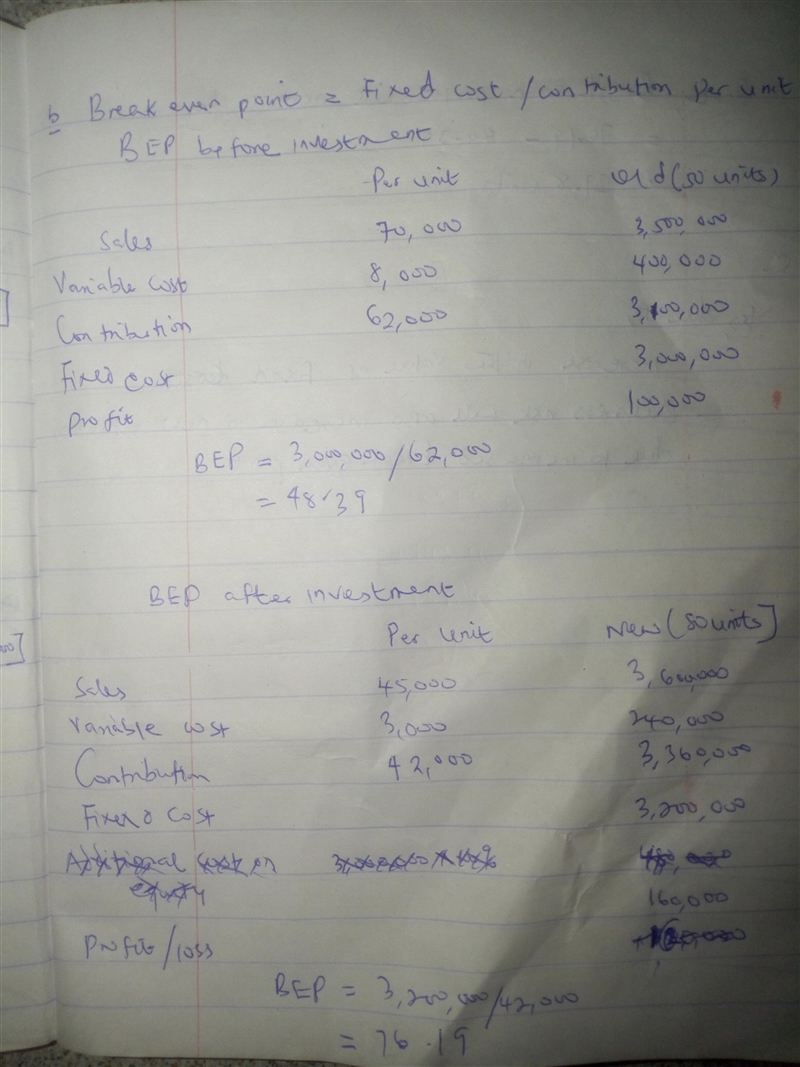 b Break even point = Fixed cost / contribution per unit
BEP before investment
Per unit old (50 units)
Sales 70,000 3,500,000
Variable cost 8,000 400,000
Contribution 62,000 3,100,000
Fixed cost 3,000,000
profit 100,000
BEP = 3,000,000/62,000
= 48.39
BEP after investment
Per unit New (80 units]
Sales 45,000 3,600,000
Variable cost 3,000 240,000
Contribution 42,000 3,360,000
Fixed cost 3,200,000
160,000
Profit/loss
BEP = 3,200,000/42,000
= 76.19